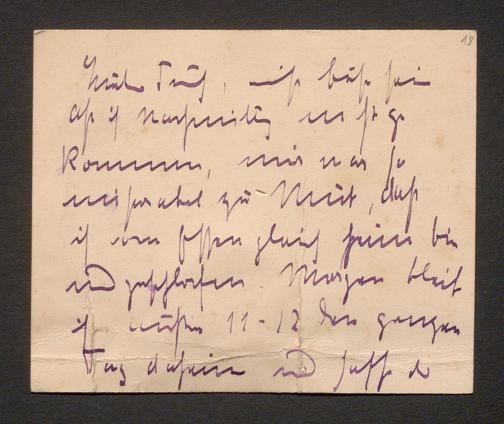 18
Liebe Trude, nicht böse sein
daß ich Nachmittag nicht ge
kommen, mir war so
miserabel zu Mut, daß
ich vom Essen gleich heim bin
und geschlafen. Morgen bleib
ich außer 11-12 den ganzen
Tag daheim und hoffe du